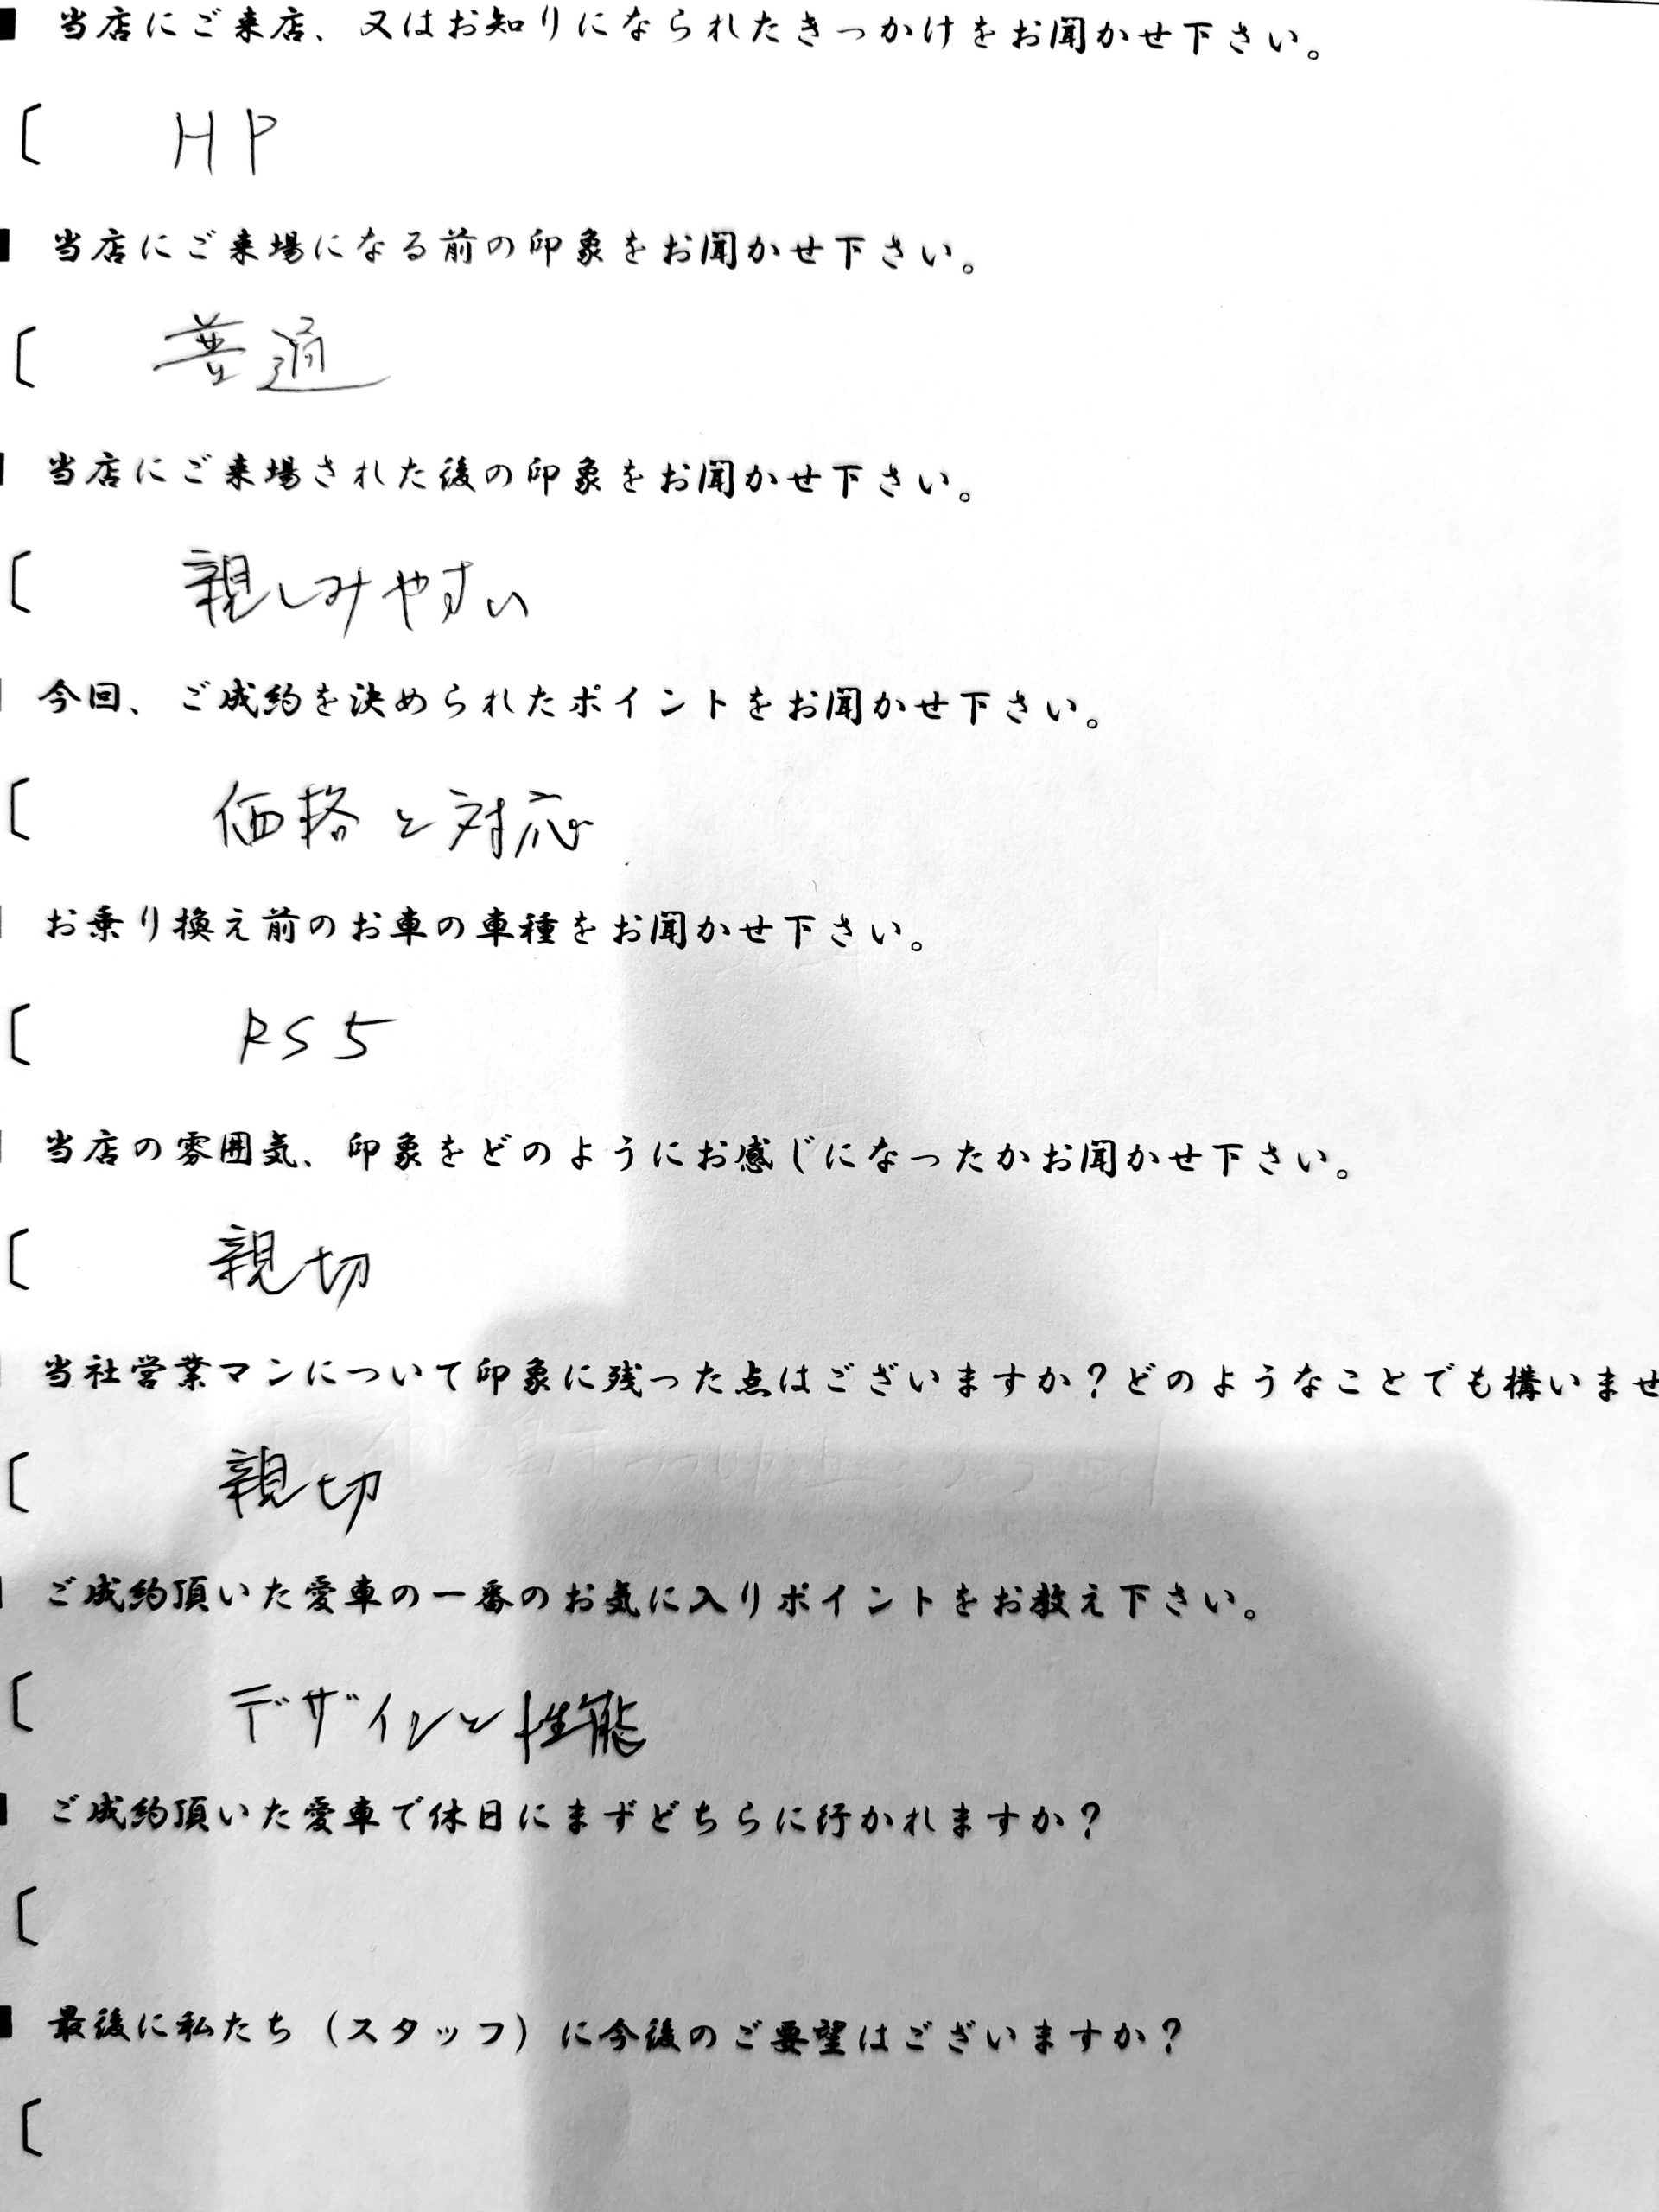 ■ 当店にご来店、又はお知りになられたきっかけをお聞かせ下さい。
〔 HP
■ 当店にご来場になる前の印象をお聞かせ下さい。
〔 普通
■ 当店にご来場された後の印象をお聞かせ下さい。
〔 親しみやすい
■ 今回、ご成約を決められたポイントをお聞かせ下さい。
〔 価格と対応
■ お乗り換え前のお車の車種をお聞かせ下さい。
〔 RS5
■ 当店の雰囲気、印象をどのようにお感じになったかお聞かせ下さい。
〔 親切
■ 当社営業マンについて印象に残った点はございますか？どのようなことでも構いませ
〔 親切
■ ご成約頂いた愛車の一番のお気に入りポイントをお教え下さい。
〔 デザインと性能
■ ご成約頂いた愛車で休日にまずどちらに行かれますか？
〔
■ 最後に私たち（スタッフ）に今後のご要望はございますか？
〔